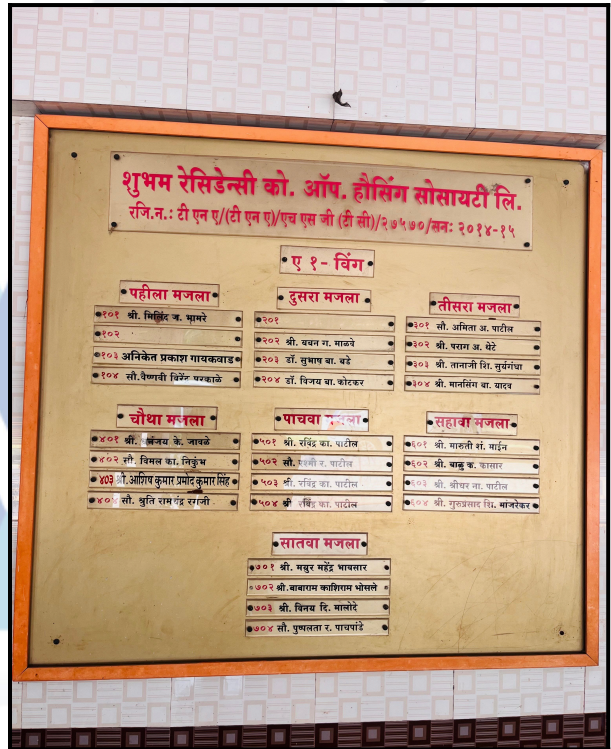 शुभम रेसिडेन्सी को. ऑप. हौसिंग सोसायटी लि.
रजि.न.: टी एन ए/(टी एन ए)/एच एस जी (टी सी)/२७५७०/सन: २०१४-१५
ए १- विंग
पहीला मजला
१०१ श्री. मिलिंद ज. भामरे
१०२
१०३ अनिकेत प्रकाश गायकवाड
१०४ सौ.वैष्णवी विरेंद्र परकाळे
दुसरा मजला
२०१
२०२ श्री. बबन ग. माळवे
२०३ डॉ. सुभाष बा. बडे
२०४ डॉ. विजय बा. कोटकर
तीसरा मजला
३०१ सौ. अमिता अ. पाटील
३०२ श्री. पराग अ. थेटे
३०३ श्री. तानाजी शि. सुर्यगंधा
३०४ श्री. मानसिंग बा. यादव
चौथा मजला
४०१ श्री. धनंजय के. जावळे
४०२ सौ. विमल का. निकुंभ
४०३ श्री.आशिष कुमार प्रमोद कुमार सिंह
४०४ सौ. श्रुति रामचंद्र रगजी
पाचवा मजला
५०१ श्री. रविंद्र का. पाटील
५०२ सौ. र. पाटील
५०३ श्री. रविंद्र का. पाटील
५०४ श्री रविंद्र का. पाटील
सहावा मजला
६०१ श्री. मारुती शं. माईन
६०२ श्री. बाळु क. कासार
६०३ श्री. श्रीधर ना. पाटील
६०४ श्री. गुरुप्रसाद शि. मांजरेकर
सातवा मजला
७०१ श्री. मयुर महेंद्र भावसार
७०२ श्री.बाबाराम काशिराम भोसले
७०३ श्री. विनय दि. मालोदे
७०४ सौ. पुष्पलता र. पाचपांडे